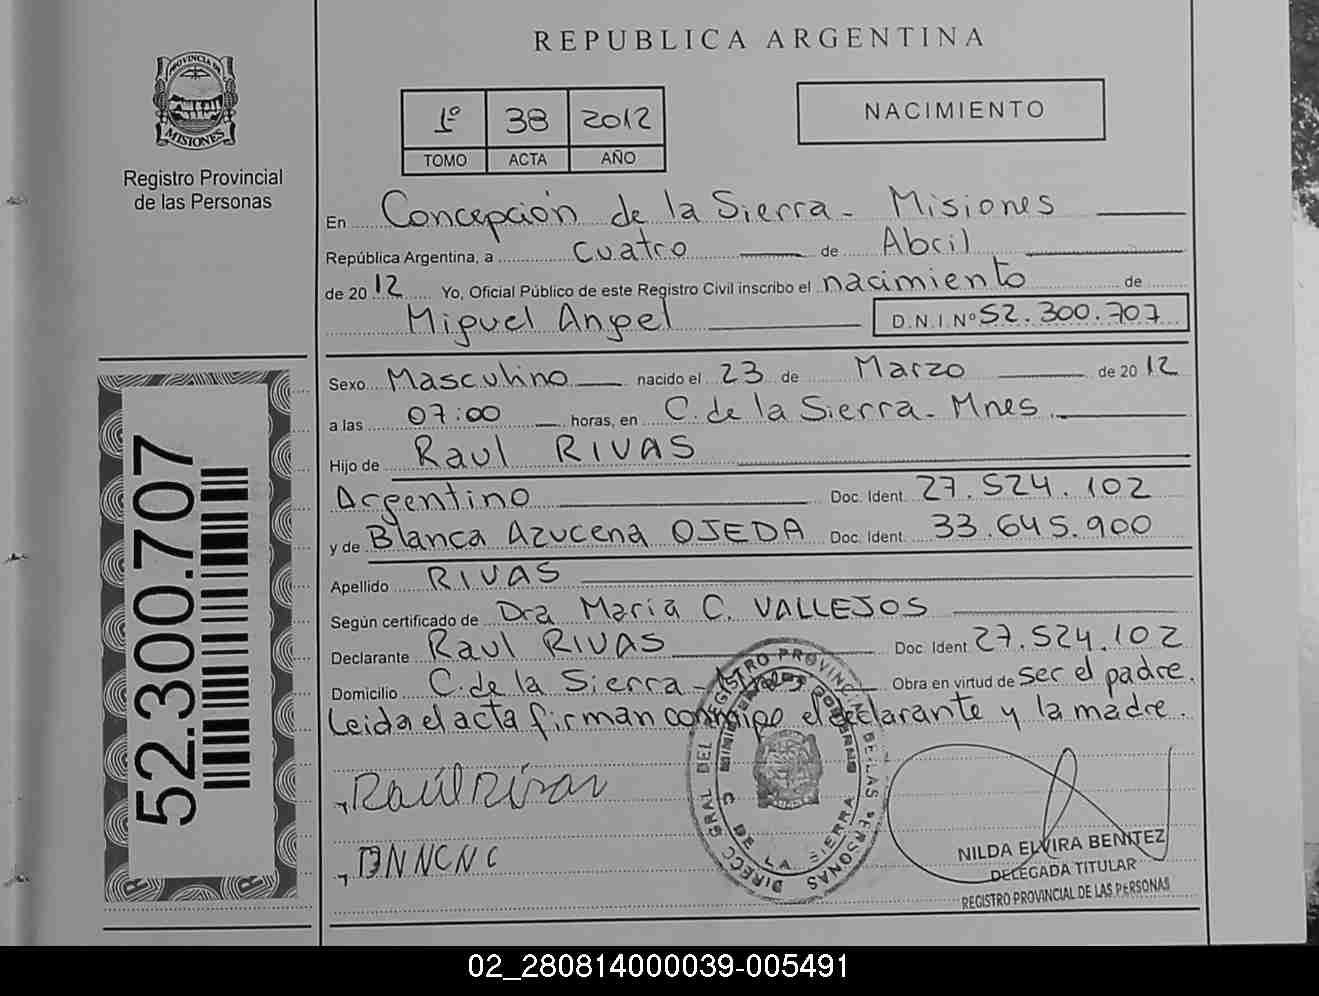 REPUBLICA ARGENTINA
PROVINCIA DE
MISIONES
Registro Provincial
de las Personas
1º 38 2012
TOMO ACTA AÑO
NACIMIENTO
En Concepción de la Sierra - Misiones
República Argentina, a cuatro de Abril
de 2012 Yo, Oficial Público de este Registro Civil inscribo el nacimiento de
Miguel Angel
D.N.I. Nº 52.300.707
Sexo Masculino nacido el 23 de Marzo de 2012
a las 07:00 horas, en C. de la Sierra - Mnes.
Hijo de Raul RIVAS
Argentino Doc. Ident. 27.524.102
y de Blanca Azucena OJEDA Doc. Ident. 33.645.900
Apellido RIVAS
Según certificado de Dra Maria C. VALLEJOS
Declarante Raul RIVAS Doc. Ident. 27.524.102
Domicilio C. de la Sierra - Obra en virtud de ser el padre.
Leida el acta firman conmigo el declarante y la madre.
Raúl Rivas
DIRECC GRAL DEL REGISTRO PROVINCIAL DE LAS PERSONAS
C DE LA SIERRA
NILDA ELVIRA BENITEZ
DELEGADA TITULAR
REGISTRO PROVINCIAL DE LAS PERSONAS
52.300.707
02_280814000039-005491